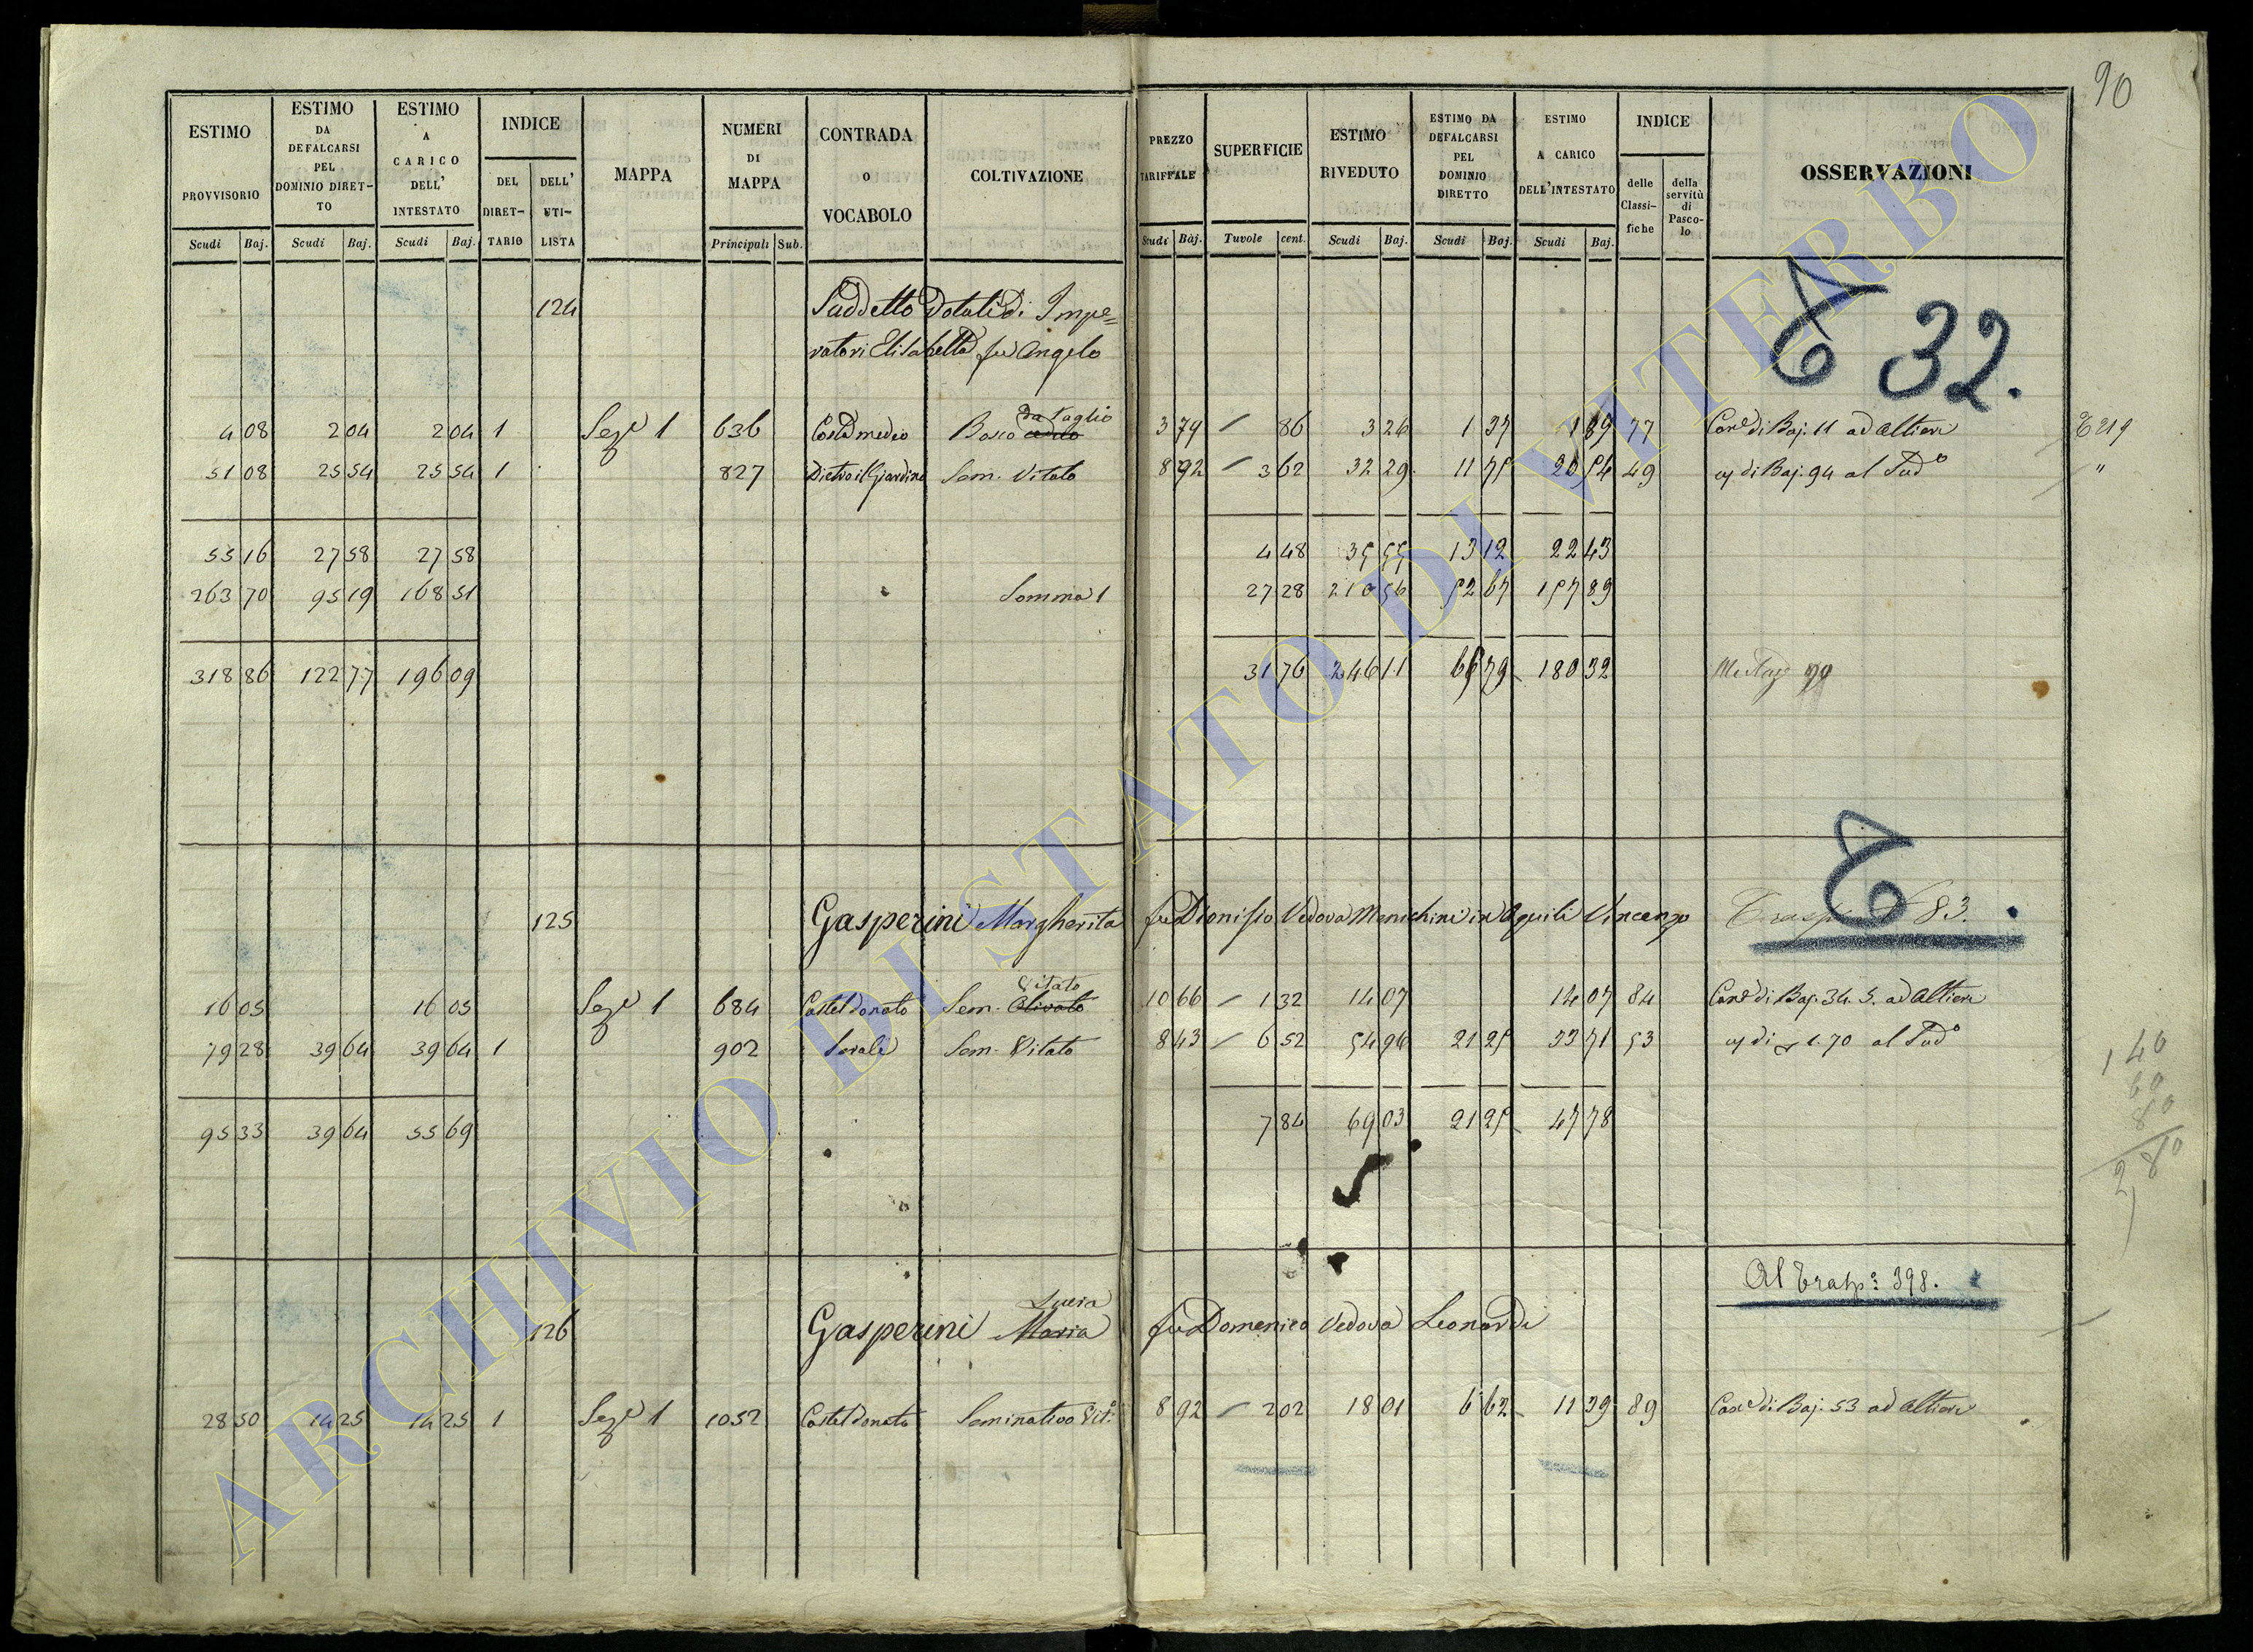 90
ESTIMO PROVVISORIO Scudi Baj.
ESTIMO DA DEFALCARSI PEL DOMINIO DIRETTO Scudi Baj.
ESTIMO A CARICO DELL' INTESTATO Scudi Baj.
INDICE DEL DIRETTARIO DELL' UTILISTA
MAPPA
NUMERI DI MAPPA Principali Sub.
CONTRADA o VOCABOLO
COLTIVAZIONE
PREZZO TARIFFALE Scudi Baj.
SUPERFICIE Tavole cent.
ESTIMO RIVEDUTO Scudi Baj.
ESTIMO DA DEFALCARSI PEL DOMINIO DIRETTO Scudi Baj.
ESTIMO A CARICO DELL'INTESTATO Scudi Baj.
INDICE delle Classifiche della servitù di Pascolo
OSSERVAZIONI
124 Suddetto Dotali di Impe=
ratori Elisabetta fu Angelo
32.
da Taglio
4 08 2 04 2 04 1 Sez.e 1 636 Costa medio Bosco 3 79 86 3 26 1 37 1 89 77 Can.e di Baj. 11 ad Altieri 219
51 08 25 54 25 54 1 827 Dietro il Giardino Sem. Vitato 8 92 3 62 32 29 11 75 20 54 49 di Baj. 94 al Sud.o "
55 16 27 58 27 58 4 48 35 55 13 12 22 43
263 70 95 19 168 51 Somma 1 27 28 210 56 52 67 157 89
318 86 122 77 196 09 31 76 246 11 65 79 180 32
125 Gasperini Margherita fu Dionisio Vedova Menichini in Aquili Vincenzo 83.
Vitato
16 05 16 05 Sez.e 1 684 Casteldonato Sem. Olivato 10 66 1 32 14 07 14 07 84 Can.e di Baj. 34. 5. ad Altieri
79 28 39 64 39 64 1 902 Sem. Vitato 8 43 6 52 54 96 21 25 33 71 53 di 1.70 al Sud.o
95 33 39 64 55 69 7 84 69 03 21 25 47 78
1 40
60
80
2,80
Al Trasp.o 398.
Lucia
126 Gasperini Maria fu Domenico Vedova Leonardi
28 50 14 25 14 25 1 Sez.e 1 1052 Casteldonato Seminativo Vit.o 8 92 2 02 18 01 6 62 11 39 89 Can.e di Baj. 53 ad Altieri
ARCHIVIO DI STATO DI VITERBO